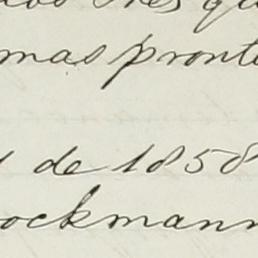 mas pront
de 1858
ockmann